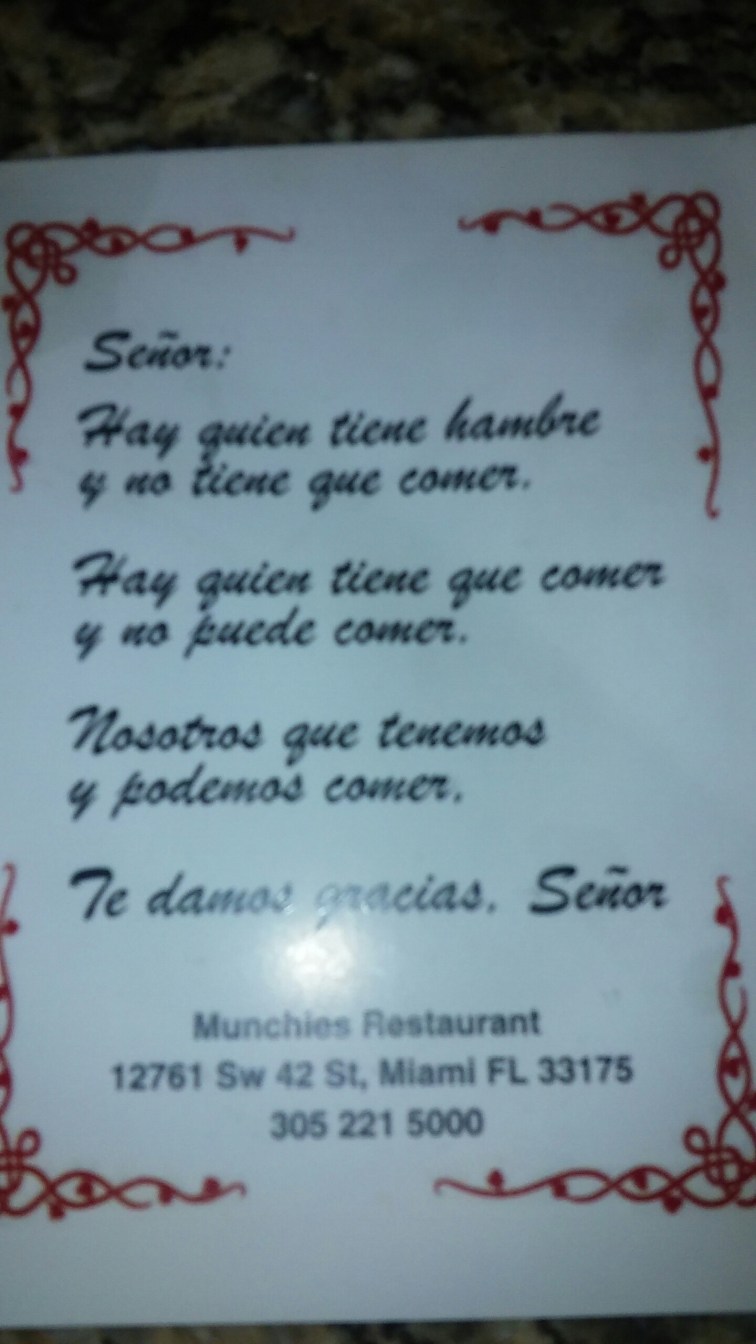 Señor:
Hay quien tiene hambre
y no tiene que comer.
Hay quien tiene que comer
y no puede comer.
Nosotros que tenemos
y podemos comer.
Te damos gracias. Señor
Munchies Restaurant
12761 Sw 42 St, Miami FL 33175
305 221 5000